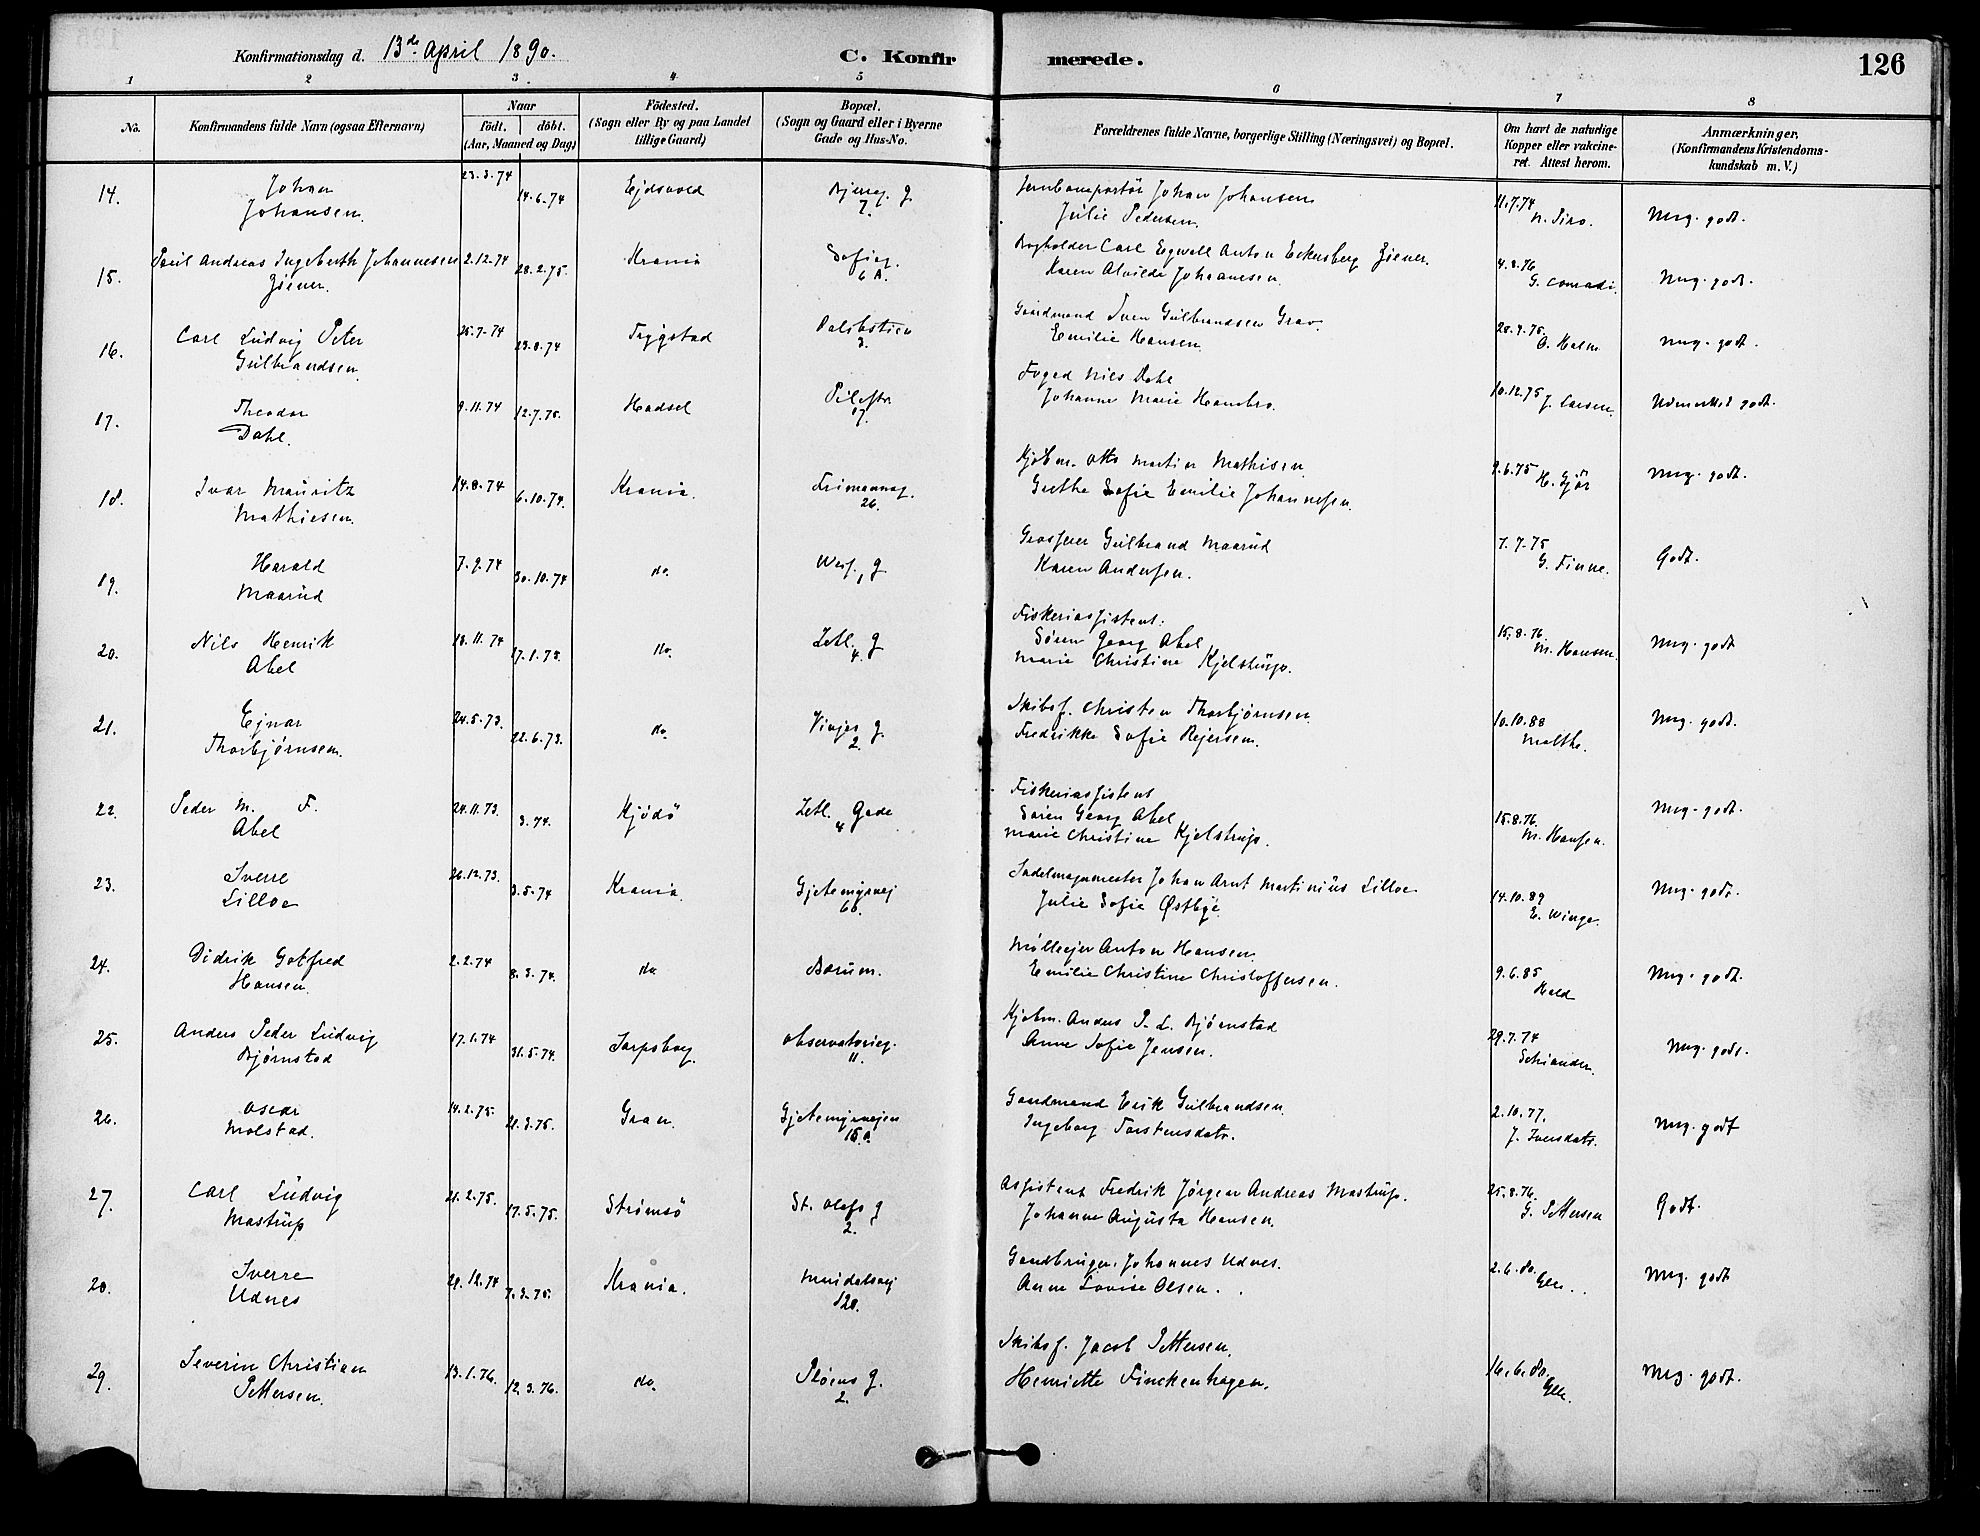 126
Konfirmationsdag d. 13de April 1890.
C. Konfirmerede.
1 2 3. 4 5 6 7 8
No.
Konfirmandens fulde Navn (ogsaa Efternavn)
Naar
födt. döbt.
(Aar, Maaned og Dag)
Födested.
(Sogn eller By og paa Landet
tillige Gaard)
Bopæl.
(Sogn og Gaard eller i Byerne
Gade og Hus-No.
Forældrenes fulde Navne, borgerlige Stilling (Næringsvei) og Bopæl.
Om havt de naturlige
Kopper eller vakcine-
ret. Attest herom.
Anmærkninger,
(Konfirmandens Kristendoms-
kundskab m. V.)
14. Johan
Johansen.
23.3.74 14.6.74 Ejdsvold
Bjerreg. g
7.
Jernbaneportör Johan Johansen
Julie Pedersen.
11.7.74
Mg. godt.
15. Poul Andreas Ingeberth Johannesen
Ziener.
2.12.74 28.2.75. Krania
Sofieg.
6 A.
Bogholder Carl Egwall Anton Eckersberg Ziener.
Karen Alvilde Johannesen.
4.8.76
G. Conradi.
Mg. godt.
16. Carl Ludvig Peter
Gulbrandsen
25.7.74 23.8.74 Trygstad
Dalsbstien
3.
Gaardmand Sven Gulbrandsen Grav.
Emilie Hansen.
20.9.75.
O. Holm
Mg. godt.
17. Theodor
Dahl.
9.11.74 12.7.75. Hadsel
Pilestr.
17.
Foged Nils Dahl
Johanne Marie Hambro.
10.12.75 J. Larsen.
Udmerket godt.
18. Ivar Mauritz
Mathiesen.
14.8.74 6.10.74. Krania.
Frimannsg.
26.
Kjöbm. Otto Martin Mathisen
Grethe Sofie Emilie Johannesen.
9.6.75
H. Gjör
Mg. godt.
19. Harald
Maarud
7.9.74 30.10.74 do.
Wess. g
1
Grosserer Gulbrand Maarud
Karen Andersen.
7.7.75
G. Finne.
Godt.
20. Nils Henrik
Abel
18.11.74 17.1.75. do.
Zetl. g
4.
Fiskeriassistent:
Sören Georg Abel
Marie Christine Kjelstrup.
15.8.76.
M. Hansen.
Mg. godt
21. Ejnar
Thorbjørnsen.
24.5.73. 22.6.73. do.
Vinjes g.
2.
Skibsf. Christen Thorbjørnsen
Fredrikke Sofie Rejersen.
10.10.88
Malthe.
Mg. godt.
22. Peder M. F.
Abel
24.11.73. 3.74. Kjödö
Zetl. Gade
4
Fiskeriassistent
Sören Georg Abel
Marie Christine Kjelstrup.
15.8.76.
M. Hansen.
Mg. godt.
23. Sverre
Lilloe
26.12.73. 3.5.74 Krania.
Gjetemyrsvej
66.
Sadelmagermester Johan Arnt Martinius Lilloe
Julie Sofie Østbye.
14.10.89
E. Winge.
Mg. godt.
24. Didrik Gotfred
Hansen.
2.2.74 8.3.74. do
Bærum.
Mölleejer Anton Hansen.
Emilie Christine Christoffersen.
9.6.85
Hald
Mg. godt.
25. Anders Peder Ludvig
Bjørnstad
17.1.74 31.5.74. Sarpsborg.
Observatorieg.
11.
Kjöbm. Anders P. L. Bjørnstad
Anne Sofie Jensen.
29.7.74
Schiander.
Mg. godt.
26. Oscar
Molstad.
14.2.75. 21.3.75. Gran.
Gjetemyrsvejen
15 a.
Gaardmand Erik Gulbrandsen
Ingeborg Torstensdatr.
2.10.77.
J. Iversdatr.
Mg. godt
27. Carl Ludvig
Mastrup
21.2.75. 17.5.75. Strømsö
St. Olafs g
2.
Assistent Fredrik Jørgen Andreas Mastrup.
Johanne Augusta Hansen.
25.8.76.
G. Pettersen
Godt.
28. Sverre
Udnes
29.12.74 7.3.75. Krania.
Maridalsvej
120.
Gaardbruger Johannes Udnes.
Anne Lovise Olsen.
2.6.80.
Mg. godt
29. Severin Christian
Pettersen.
13.1.76. 12.3.76. do.
Pløens g.
2.
Skibsf. Jacob Pettersen.
Henriette Finckenhagen.
16.6.80.
Mg. godt.